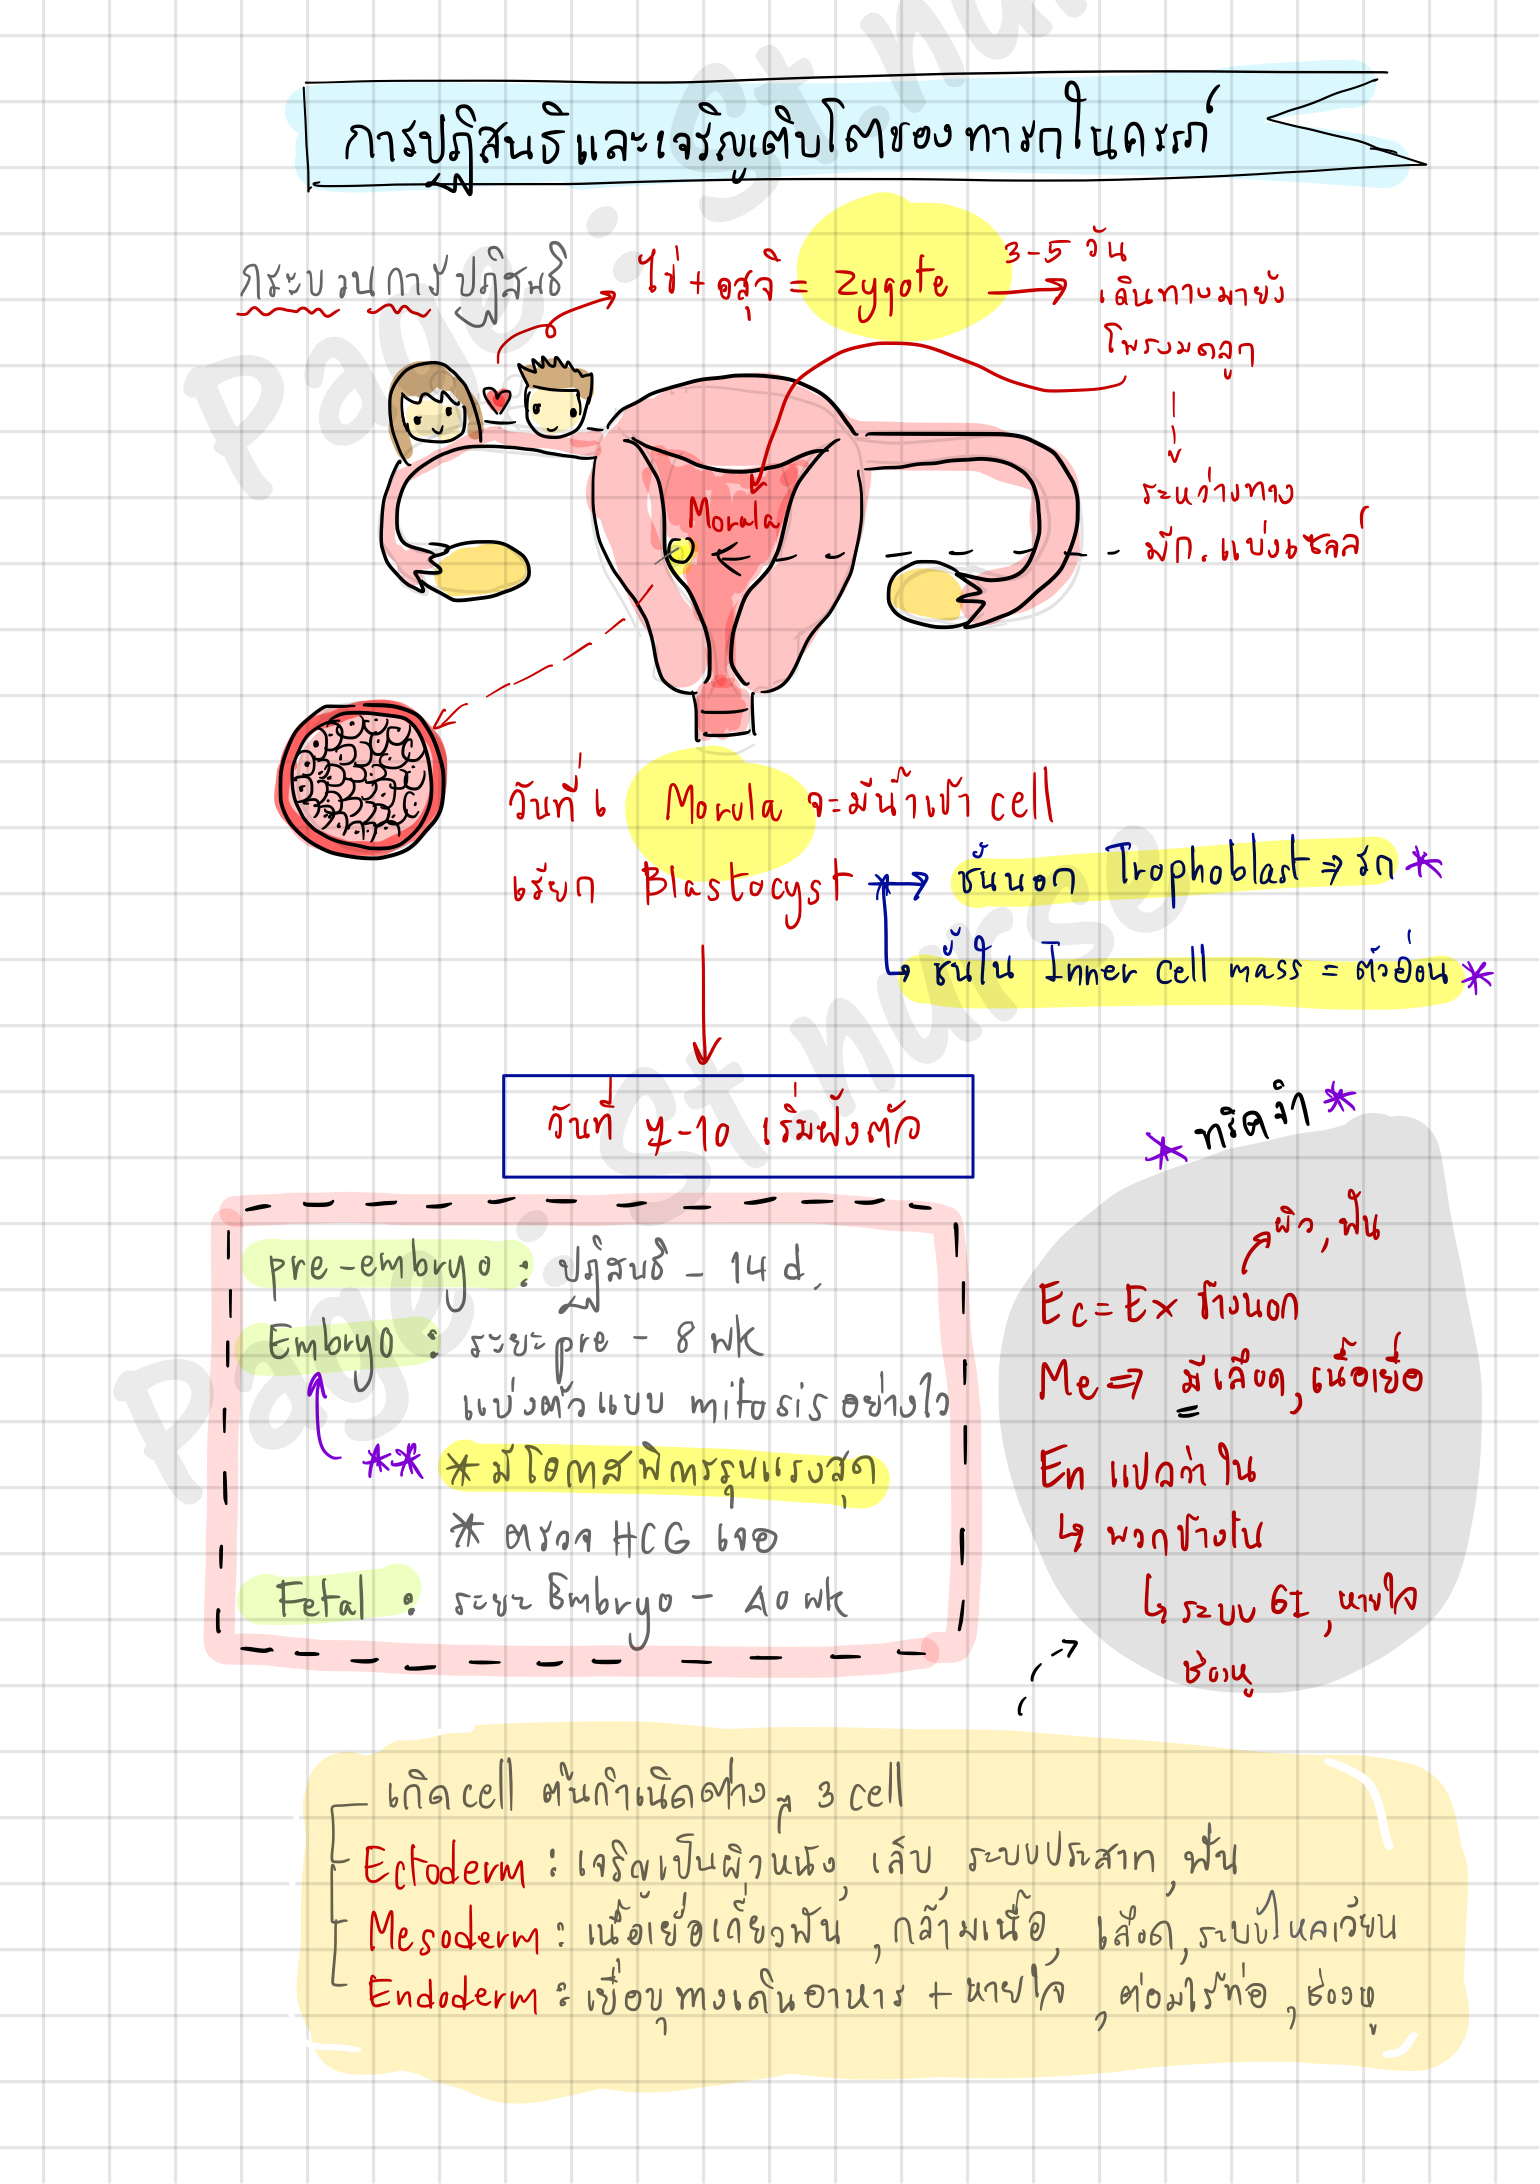 การปฏิสนธิและเจริญเติบโตของทารกในครรภ์
กระบวนการปฏิสนธิ
ไข่ + อสุจิ = Zygote
3-5 วัน
เดินทางมายัง
โพรงมดลูก
ระหว่างทาง
มีก. แบ่งเซลล์
Morula
วันที่ 4 Morula จะมีน้ำเข้า cell
เรียก Blastocyst
ชั้นนอก Trophoblast ⇒ รก *
ชั้นใน Inner cell mass = ตัวอ่อน *
วันที่ 7-10 เริ่มฝังตัว
pre-embryo : ปฏิสนธิ - 14 d.
Embryo : ระยะ pre - 8 wk
แบ่งตัวแบบ mitosis อย่างไว
** * มีโอกาสพิการรุนแรงสุด
* ตรวจ HCG เจอ
Fetal : ระยะ Embryo - 40 wk
* ทริคจำ *
ผิว, ฟัน
Ec = Ex ข้างนอก
Me ⇒ มีเลือด, เนื้อเยื่อ
En แปลว่า ใน
↳ พวกข้างใน
↳ ระบบ GI, หายใจ
ช่องหู
เกิด cell ต้นกำเนิดต่างๆ 3 cell
Ectoderm : เจริญเป็นผิวหนัง, เล็บ, ระบบประสาท, ฟัน
Mesoderm : เนื้อเยื่อเกี่ยวพัน, กล้ามเนื้อ, เลือด, ระบบไหลเวียน
Endoderm : เยื่อบุทางเดินอาหาร + หายใจ, ต่อมไร้ท่อ, ช่องหู
Page : St.nurse
Page : St.nurse